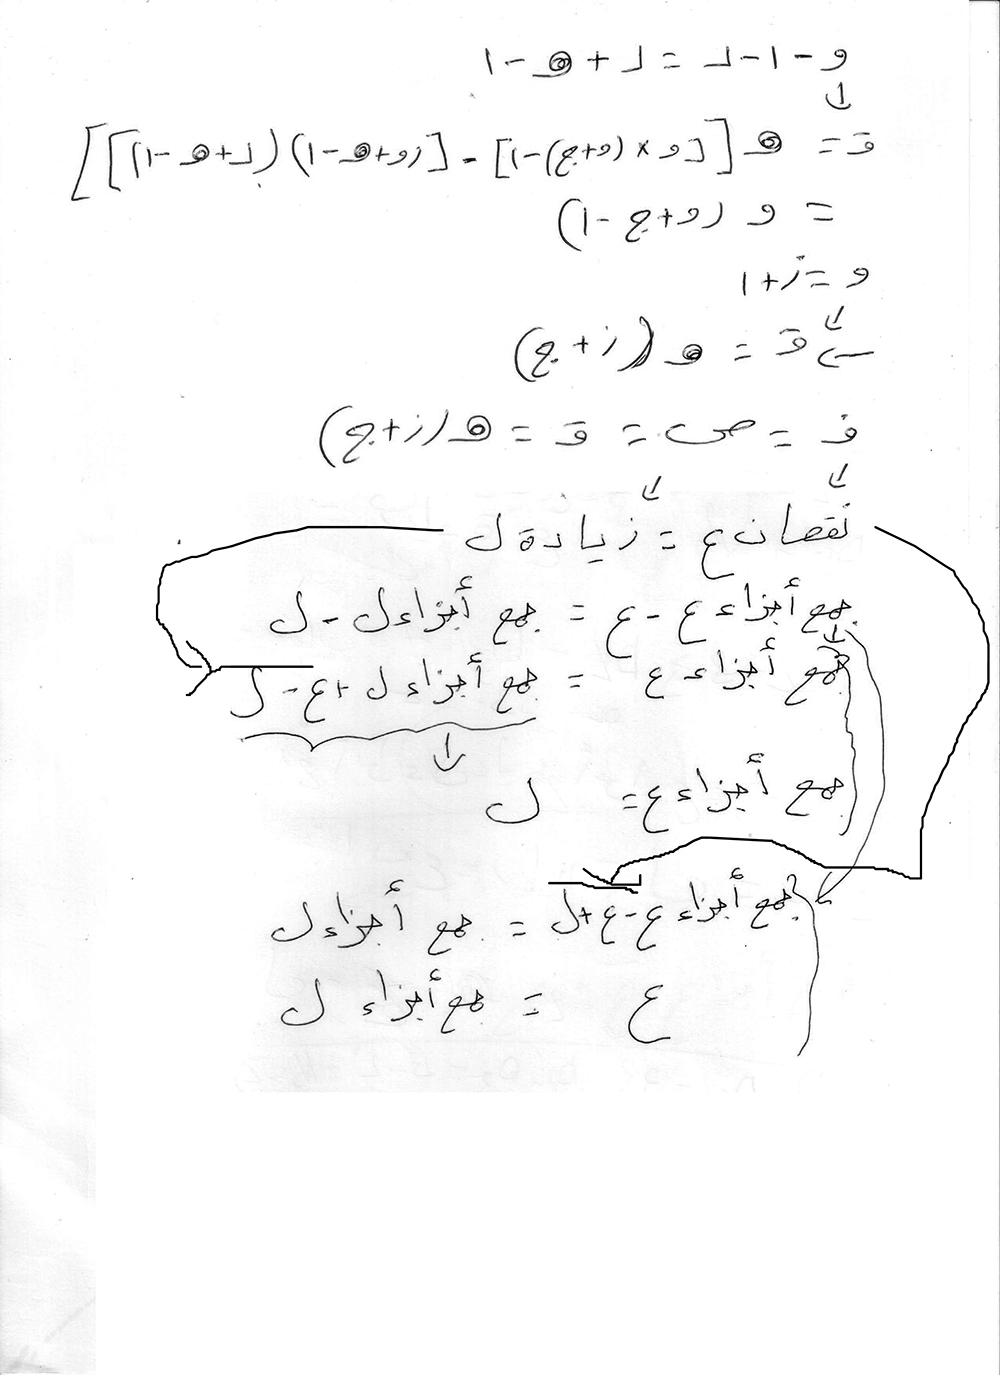 و - ١ - د = د + ه - ١
ق = ه [[و × (و+ج) - ١] - [(و + ه - ١) (د + ه - ١)]]
= و (و + ج - ١)
و = ز + ١
ق = ه (ز + ج)
ف = ص = ق = ه (ز + ج)
نقصان ع = زيادة ل
جمع أجزاء ع - ع = جمع أجزاء ل - ل
جمع أجزاء ع = جمع أجزاء ل + ع - ل
جمع أجزاء ع = ل
جمع أجزاء ع - ع + ل = جمع أجزاء ل
ع = جمع أجزاء ل